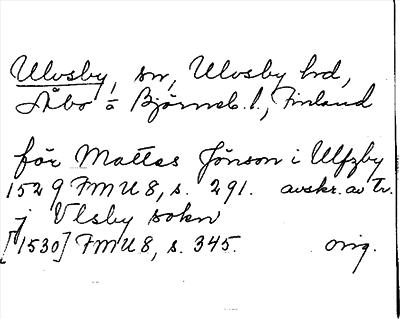 Ulvsby, sn, Ulvsby hd,
Åbo o Björneb. l., Finland
för Mattes Jönson i Ulfzby
1529 FMU 8, s. 291. avskr. av tr.
j Vlsby sokn
[1530] FMU 8, s. 345. orig.